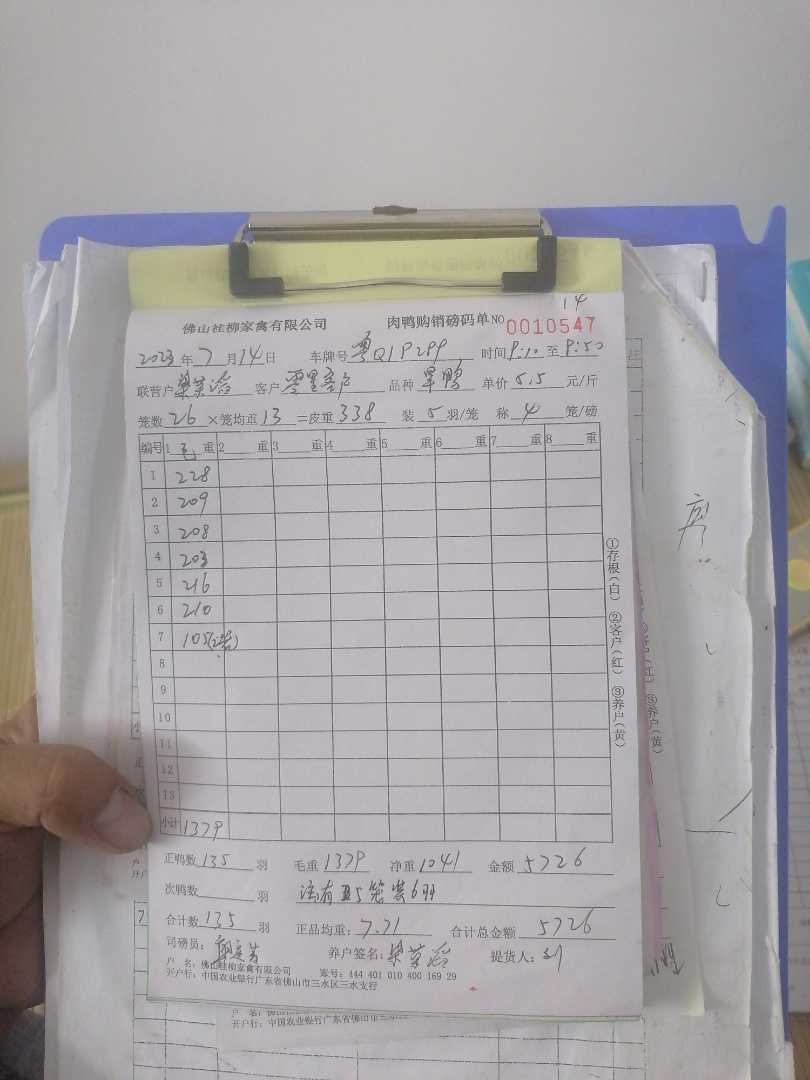 14
佛山桂柳家禽有限公司 肉鸭购销磅码单 NO 0010547
2023 年 7 月 14 日 车牌号 粤Q1P299 时间 9:10 至 9:50
联营户 梁英滔 客户 零星客户 品种 旱鸭 单价 5.5 元/斤
笼数 26 ×笼均重 13 =皮重 338 装 5 羽/笼 称 4 笼/磅
编号 1 毛 重 2 重 3 重 4 重 5 重 6 重 7 重 8 重
1 228
2 209
3 208
4 203
5 216
6 210
7 105(2笼)
8
9
10
11
12
13
小计 1379
①存根(白) ②客户(红) ③养户(黄)
正鸭数 135 羽 毛重 1379 净重 1041 金额 5726
次鸭数 羽 注有 5笼装6羽
合计数 135 羽 正品均重: 7.71 合计总金额 5726
司磅员: 养户签名: 梁英滔 提货人: 刘
户 名: 佛山桂柳家禽有限公司 账号: 444 401 010 400 169 29
开户行: 中国农业银行广东省佛山市三水区三水支行
③养户(黄)
开户行: 中国农业银行广东省佛山市三水